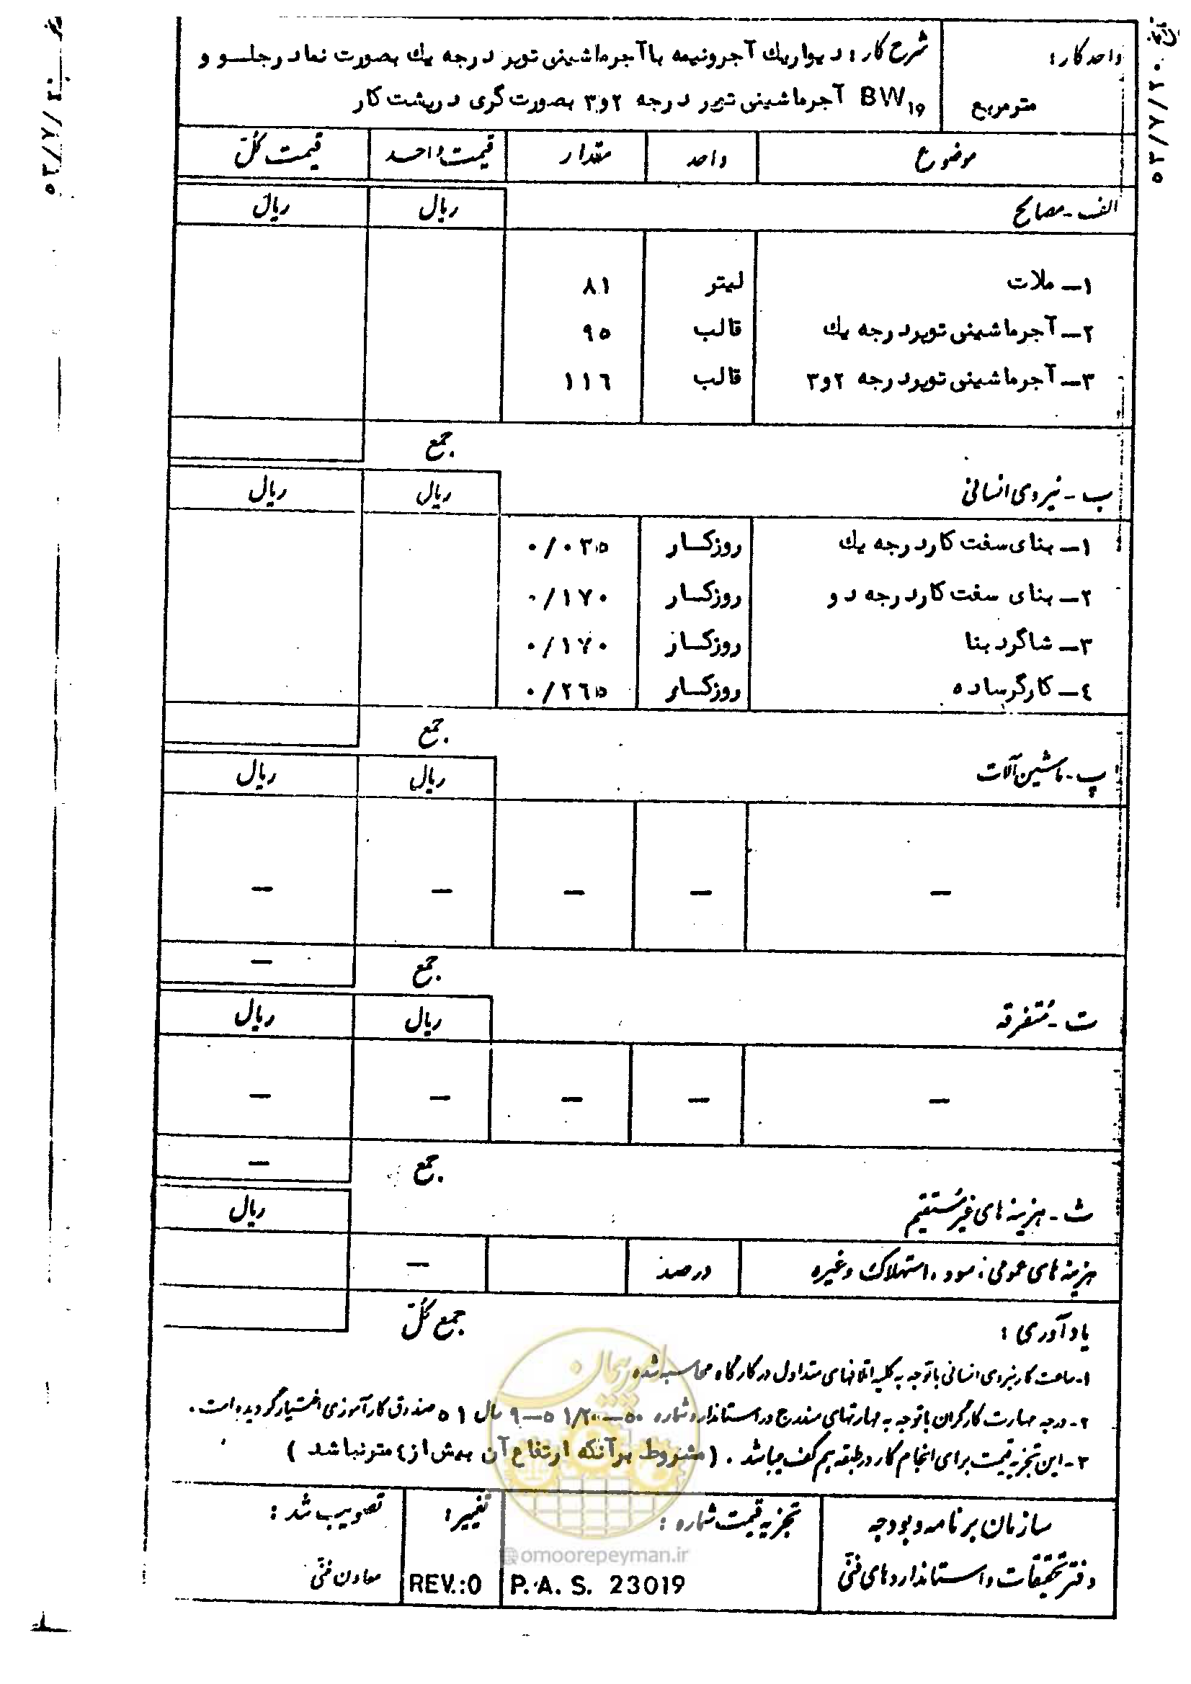 واحد کار : شرح کار : دیوار یك آجرونیمه با آجرماشینی توپر درجه یك بصورت نماد رجلسو و
مترمربع BW19 آجرماشینی توپر درجه ۲و۳ بصورت گری در پشت کار
موضوع واحد مقدار قیمت واحد قیمت کل
الف - مصالح ریال ریال
۱- ملات لیتر ۸۱
۲- آجرماشینی توپردرجه یك قالب ۹۵
۳- آجرماشینی توپردرجه ۲و۳ قالب ۱۱٦
جمع
ب - نیروی انسانی ریال ریال
۱- بنای سفت کاردرجه یك روزکار ۰/۰۳۵
۲- بنای سفت کاردرجه دو روزکار ۰/۱۷۰
۳- شاگرد بنا روزکار ۰/۱۷۰
٤- کارگرساده روزکار ۰/۲٦۵
جمع
پ - ماشین آلات ریال ریال
— — — — —
جمع —
ت - متفرقه ریال ریال
— — — — —
جمع —
ث - هزینه های غیرمستقیم ریال
هزینه های عمومی ، سود ، استهلاک و غیره درصد —
جمع کل
یادآوری :
۱- ساعت کار نیروی انسانی با توجه به کلیه اتلافهای متداول در کارگاه محاسبه شده
۲- درجه مهارت کارگران با توجه به مهارتهای مندرج در استاندارد شماره ۵۰-۱/۲۰۰ ۵-۹ سال ۵۱ صندوق کارآموزی اختیار گردیده است .
۳- این تجزیه قیمت برای انجام کار در طبقه هم کف میباشد . ( مشروط برآنکه ارتفاع آن بیش از ٤ مترنباشد )
سازمان برنامه و بودجه تجزیه قیمت شماره : تغییر : تصویب شد :
دفتر تحقیقات و استانداردهای فنی P.A.S. 23019 REV.:0 معاون فنی
امور پیمان
@omoorepeyman.ir
۵۳/۷/۲۰
۵۳/۷/۲۰